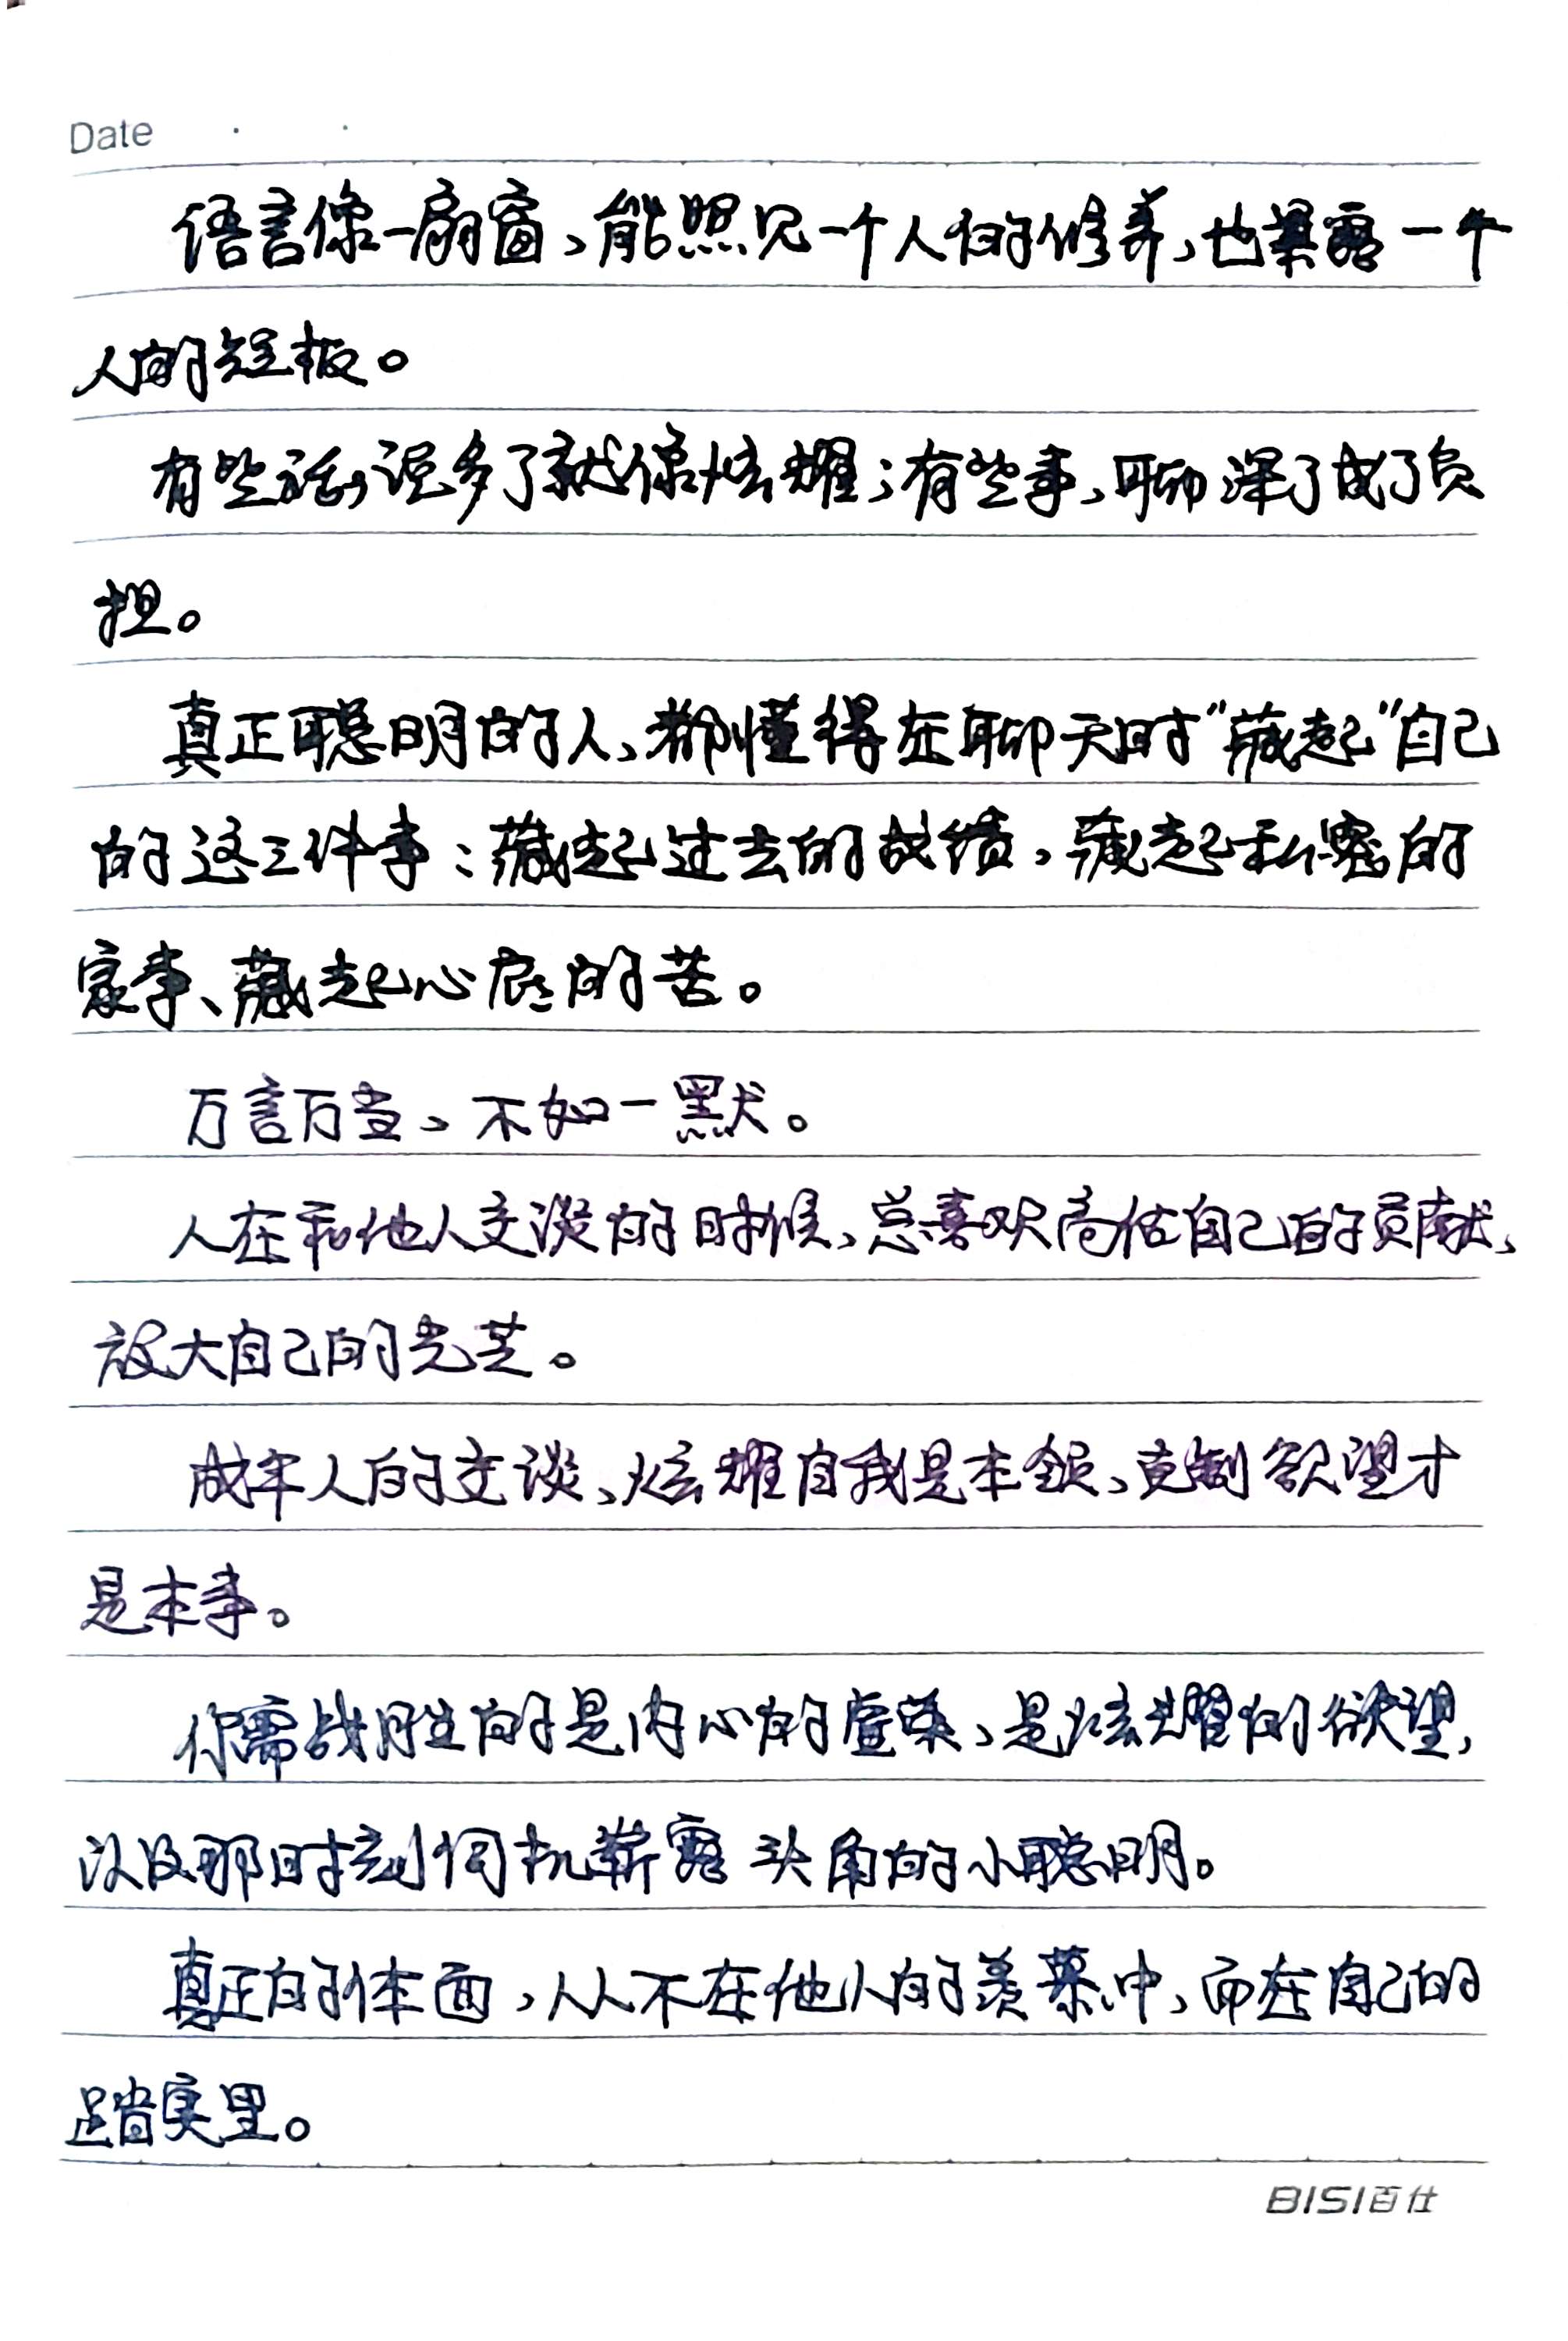 Date
语言像一扇窗,能照见一个人的修养,也暴露一个
人的短板。
有些话,说多了就像炫耀;有些事,聊深了成了负
担。
真正聪明的人,都懂得在聊天时“藏起”自己
的这三件事:藏起过去的战绩,藏起私密的
家事、藏起心底的苦。
万言万当,不如一默。
人在和他人交谈的时候,总喜欢高估自己的贡献,
放大自己的光芒。
成年人的交谈,炫耀自我是本能,克制欲望才
是本事。
你需战胜的是内心的虚荣,是炫耀的欲望,
以及那时刻伺机崭露头角的小聪明。
真正的体面,从不在他人的羡慕中,而在自己的
踏实里。
BISI百仕